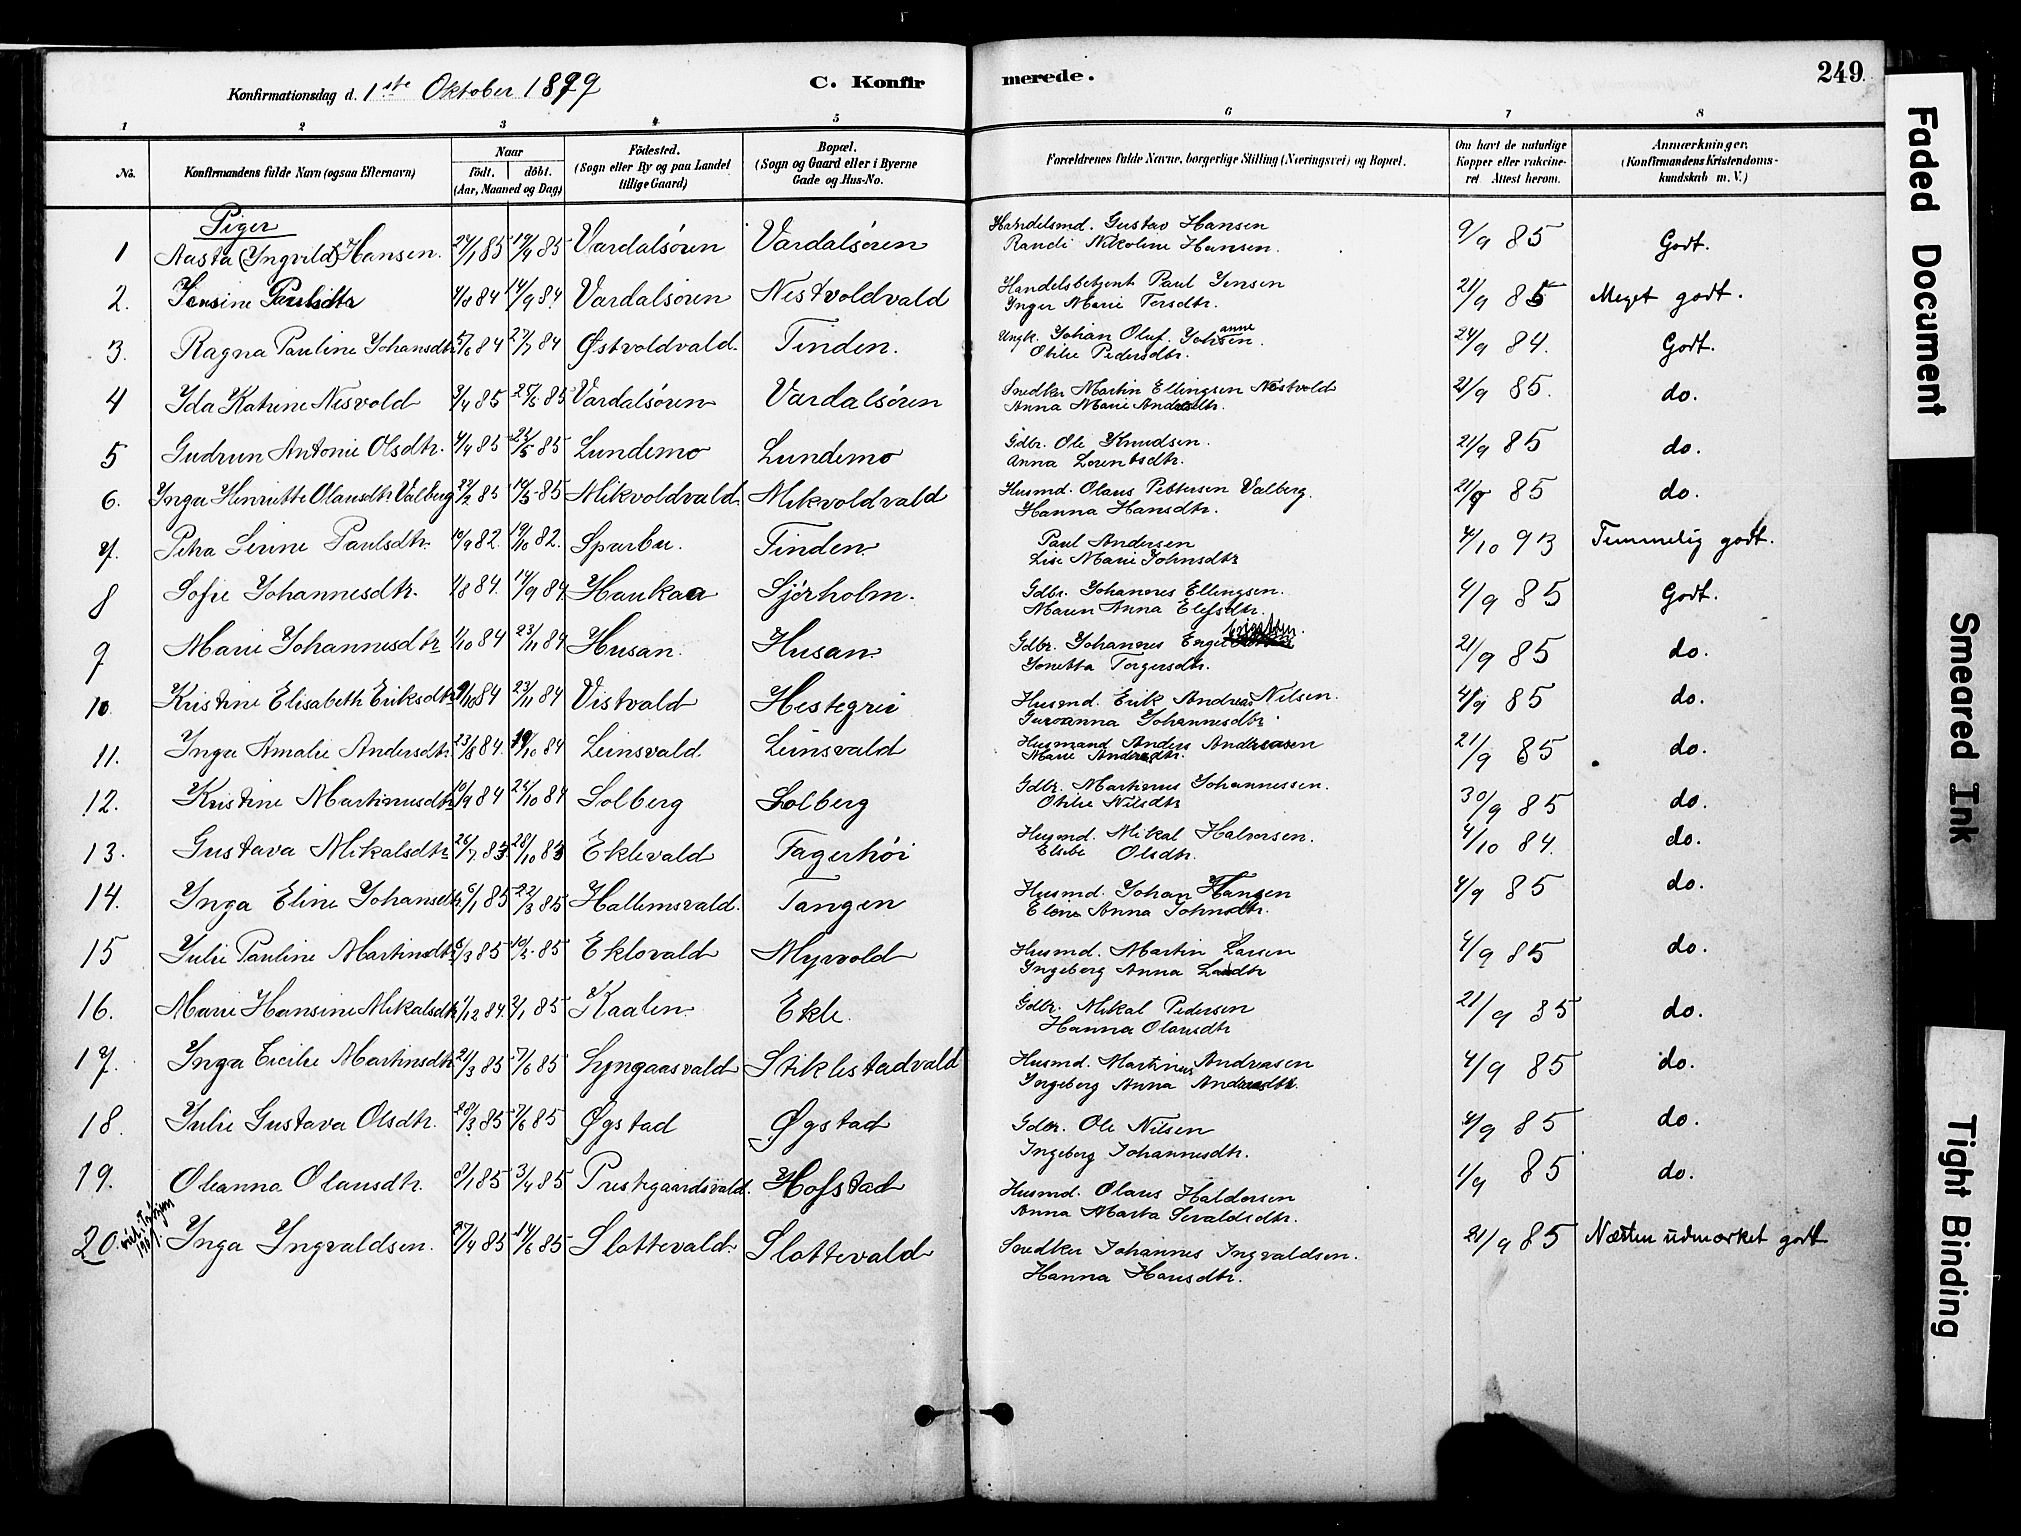 249.
Konfirmationsdag d. 1ste Oktober 1899
C. Konfirmerede.
1 2 3 4 5 6 7 8
No. Konfirmandens fulde Navn (ogsaa Efternavn) Naar født. døbt. (Aar, Maaned og Dag) Födested. (Sogn eller By og paa Landet tillige Gaard) Bopæl. (Sogn og Gaard eller i Byerne Gade og Hus-No. Forældrenes fulde Navne, borgerlige Stilling (Næringsvei) og Bopæl. Om havt de naturlige Kopper eller vakcineret. Attest herom. Anmærkninger, (Konfirmandens Kristendomskundskab m. V.)
Piger
1 Aasta (Ingvild) Hansen. 27/1 85 19/4 85 Værdalsøren Værdalsøren Handelsmd. Gustav Hansen Randi Nikoline Hansen. 9/9 85 Godt.
2. Jensine Paulsdtr 4/8 84 14/9 84 Værdalsøren Nestvoldvald Handelsbetjent Paul Jensen Inger Marie Torsdtr. 21/9 85 Meget godt.
3. Ragna Pauline Johansdtr 5/6 84 27/7 84 Østvoldvald. Tinden. Ungk. Johan Oluf Otilie Pedersdtr. 24/9 84. Godt.
4 Ida Katrine Nesvold 3/4 85 25/5 85 Værdalsøren Værdalsøren Snedker Martin Ellingsen Nestvold Anna Marie 21/9 85. do.
5 Gudrun Antonie Olsdtr. 4/4 85 22/5 85 Lundemo Lundemo Gdbr. Ole Knudsen. Anna Lorentsdtr. 21/9 85 do.
6. Inga Henriette Olausdtr. Valberg 22/2 85 14/5 85 Mikvoldvald. Mikvoldvald Husmd. Olaus Pettersen Valberg. Hanna Hansdtr. 21/9 85 do.
7. Petra Serine Paulsdtr. 10/9 82. 19/10 82. Sparbu. Tinden. Paul Andersen Lise Marie Johnsdtr 4/10 93 Temmelig godt.
8 Sofie Johannesdtr. 1/8 84. 14/9 84. Haukaa Sjørholm. Gdbr. Johannes Ellingsen. Maren Anna Elefsdtr. 4/9 85 Godt.
9 Marie Johannesdtr 1/10 84 23/11 84 Husan. Husan. Gdbr. Johannes Jonetta Torgersdtr. 21/9 85 do.
10 Kristine Elisabeth Eriksdtr 9/10 84 23/11 84 Vistvald Hestegrei Husmd. Erik Andreas Nilsen. Guroanna Johannesdtr. 4/9 85 do.
11. Inga Amalie Andersdtr. 23/8 84. 19/10 84 Leinsvald Leinsvald Husmand Anders Andreasen Marie 21/9 85 do.
12. Kristine Martinusdtr 10/9 84 25/10 84 Solberg Solberg Gdbr. Martinus Johannessen. Otilie Nilsdtr 30/9 85 do.
13. Gustava Mikalsdtr 26/7 83. 28/10 83 Eklevald Fagerhøi Husmd. Mikal Halvorsen. Olsdtr. 4/10 84. do.
14. Inga Eline Johansdtr 6/1 85 22/3 85 Hallemsvald. Tangen Husmd. Johan Hansen Anna Johnsdtr. 4/9 85 do.
15 Julie Pauline Martinsdtr 5/3 85 10/5 85 Eklovald Myrvold Husmd. Martin Larsen Ingeborg Anna 4/9 85 do.
16. Marie Hansine Mikalsdtr 1/12 84. 2/1 85 Kaalen Ekle. Gdbr. Mikal Pedersen Hanna Olausdtr 21/9 85 do.
17. Inga Cicilie Martinsdtr 21/3 85 7/6 85 Lyngaasvald Stiklestadvald Husmd. Martinus Andreasen Ingeborg Anna Andreasdtr. 4/9 85 do.
18. Julie Gustava Olsdtr. 28/3 85 7/6 85 Øgstad Øgstad Gdbr. Ole Nilsen Ingeborg Johannesdtr. 4/9 85 do.
19. Oleanna Olausdtr. 8/1 85 3/4 85 Prestegaardsvald. Hofstad Husmd. Olaus Haldorsen Anna Marta Sivaldsdtr. 1/9 85 do.
20. Inga Ingvaldsen. 27/4 85 14/6 85 Slottevald. Slottevald Snedker Johannes Ingvaldsen. Hanna Hansdtr. 21/9 85 Næsten udmærket godt
Faded Document
Smeared Ink
Tight Binding